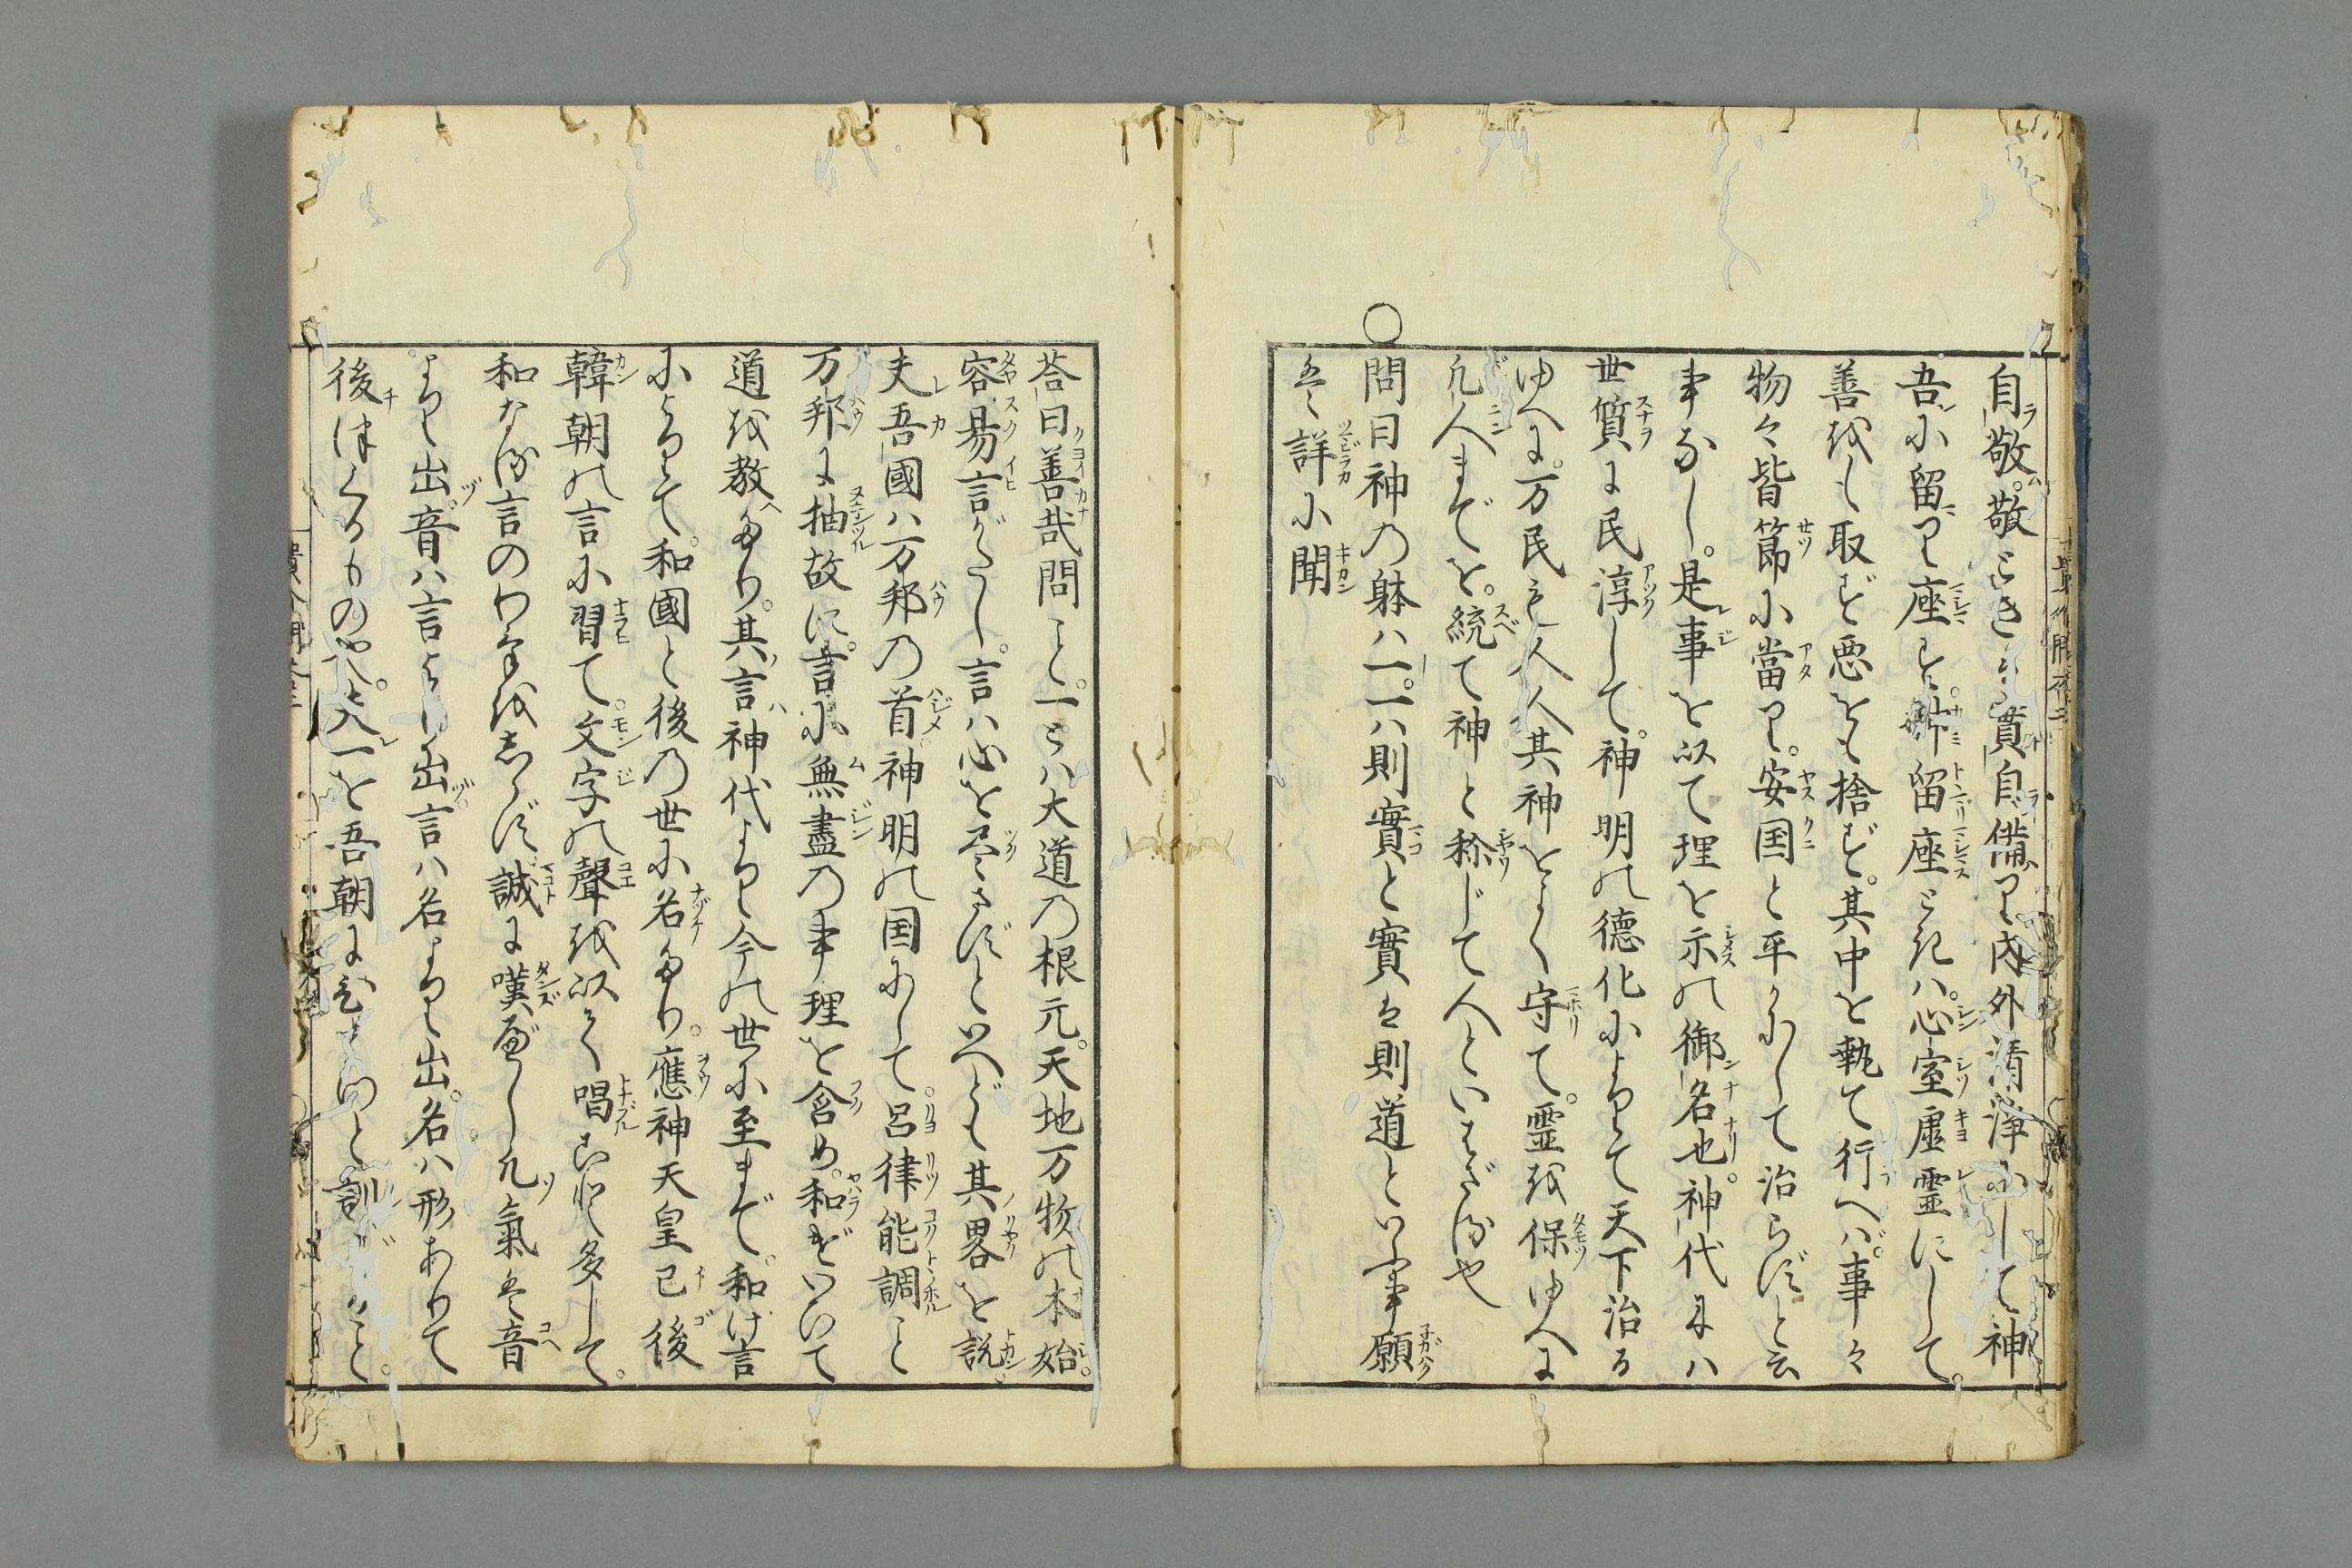 自敬。敬ときは實自備り内外清浄にして神
吾に留り座す。神留座ときハ。心室虚霊にして。
善をも取ず悪をも捨ず。其中を執て行へバ。事々
物々皆節に當り。安国と平かにして治らずと云
事なし。是事を以て理を示の御名也。神代にハ
世質に民淳して。神明の徳化によりて天下治る
ゆへに。万民も人人其神をよく守て。霊を保ゆへに
凡人までを。統て神と称じて人といはざる也
○問曰神の躰ハ一。一ハ則實と實は則道といふ事願
は詳に聞
荅曰善哉問こと。一とハ大道の根元。天地万物の本始。
容易言がたし。言ハ心を尽さずといへども其畧を説
夫吾國ハ万邦の首神明の国にして。呂律能調こと
万邦に抽故に。言に無盡の事理を含め。和ぎついて
道を教へたり。其言神代より今の世に至まで。和け言
によりて。和國と後の世に名たり。應神天皇已後
韓朝の言に習て。文字の聲を以く唱こと多して。
和なる言のわけをしらず。誠に嘆べし凡氣は音
より出。音ハ言より出言ハ名より出。名ハ形ありて
後につくるもの也。夫一を吾朝にひとつと訓がごと。